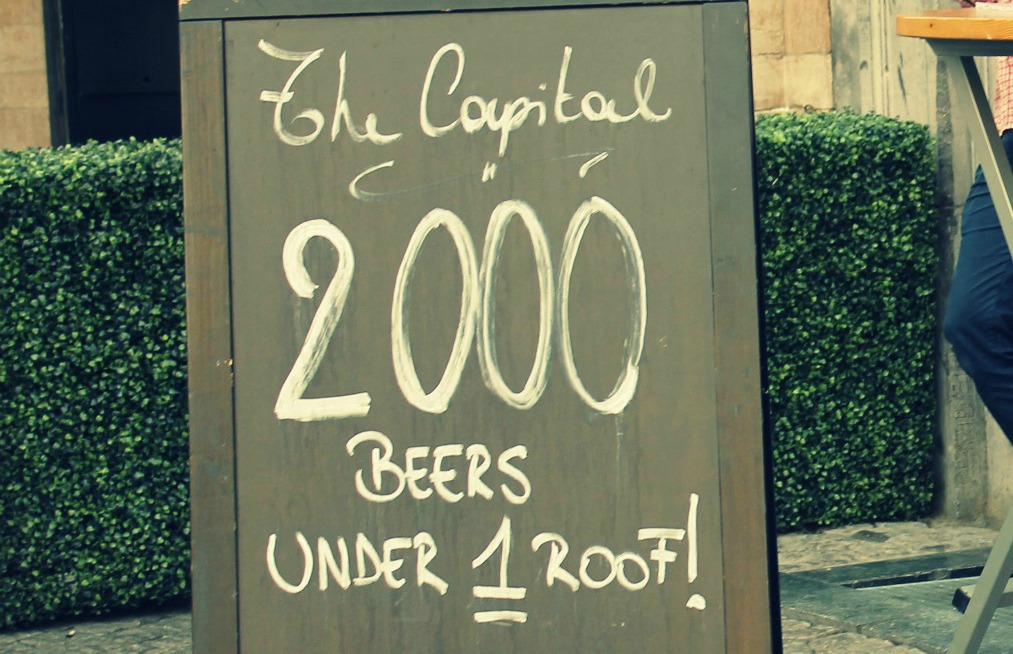 The Capital
2000
BEERS
UNDER 1 ROOF!